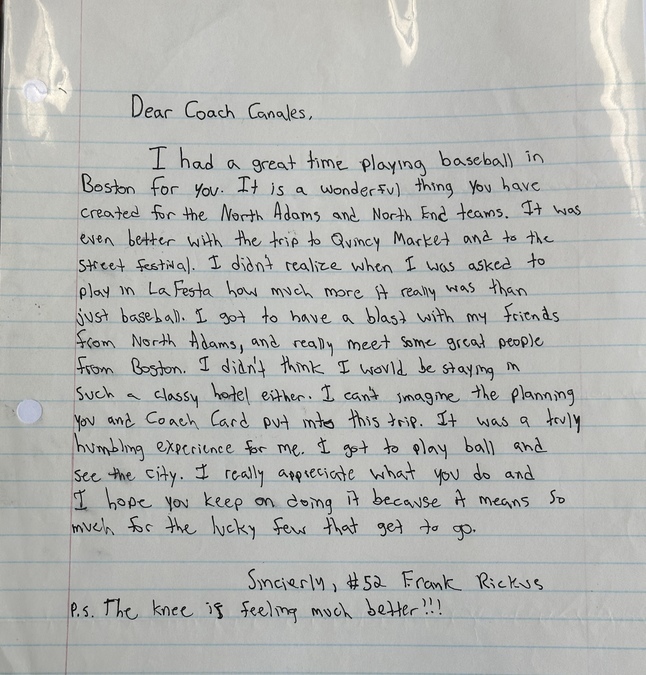 Dear Coach Canales,
I had a great time playing baseball in
Boston for you. It is a wonderful thing you have
created for the North Adams and North End teams. It was
even better with the trip to Quincy Market and to the
street festival. I didn't realize when I was asked to
play in La Festa how much more it really was than
just baseball. I got to have a blast with my friends
from North Adams, and really meet some great people
from Boston. I didn't think I would be staying in
such a classy hotel either. I can't imagine the planning
you and Coach Card put into this trip. It was a truly
humbling experience for me. I got to play ball and
see the city. I really appreciate what you do and
I hope you keep on doing it because it means so
much for the lucky few that get to go.
Sincierly, #52 Frank Rickus
P.S. The knee is feeling much better!!!